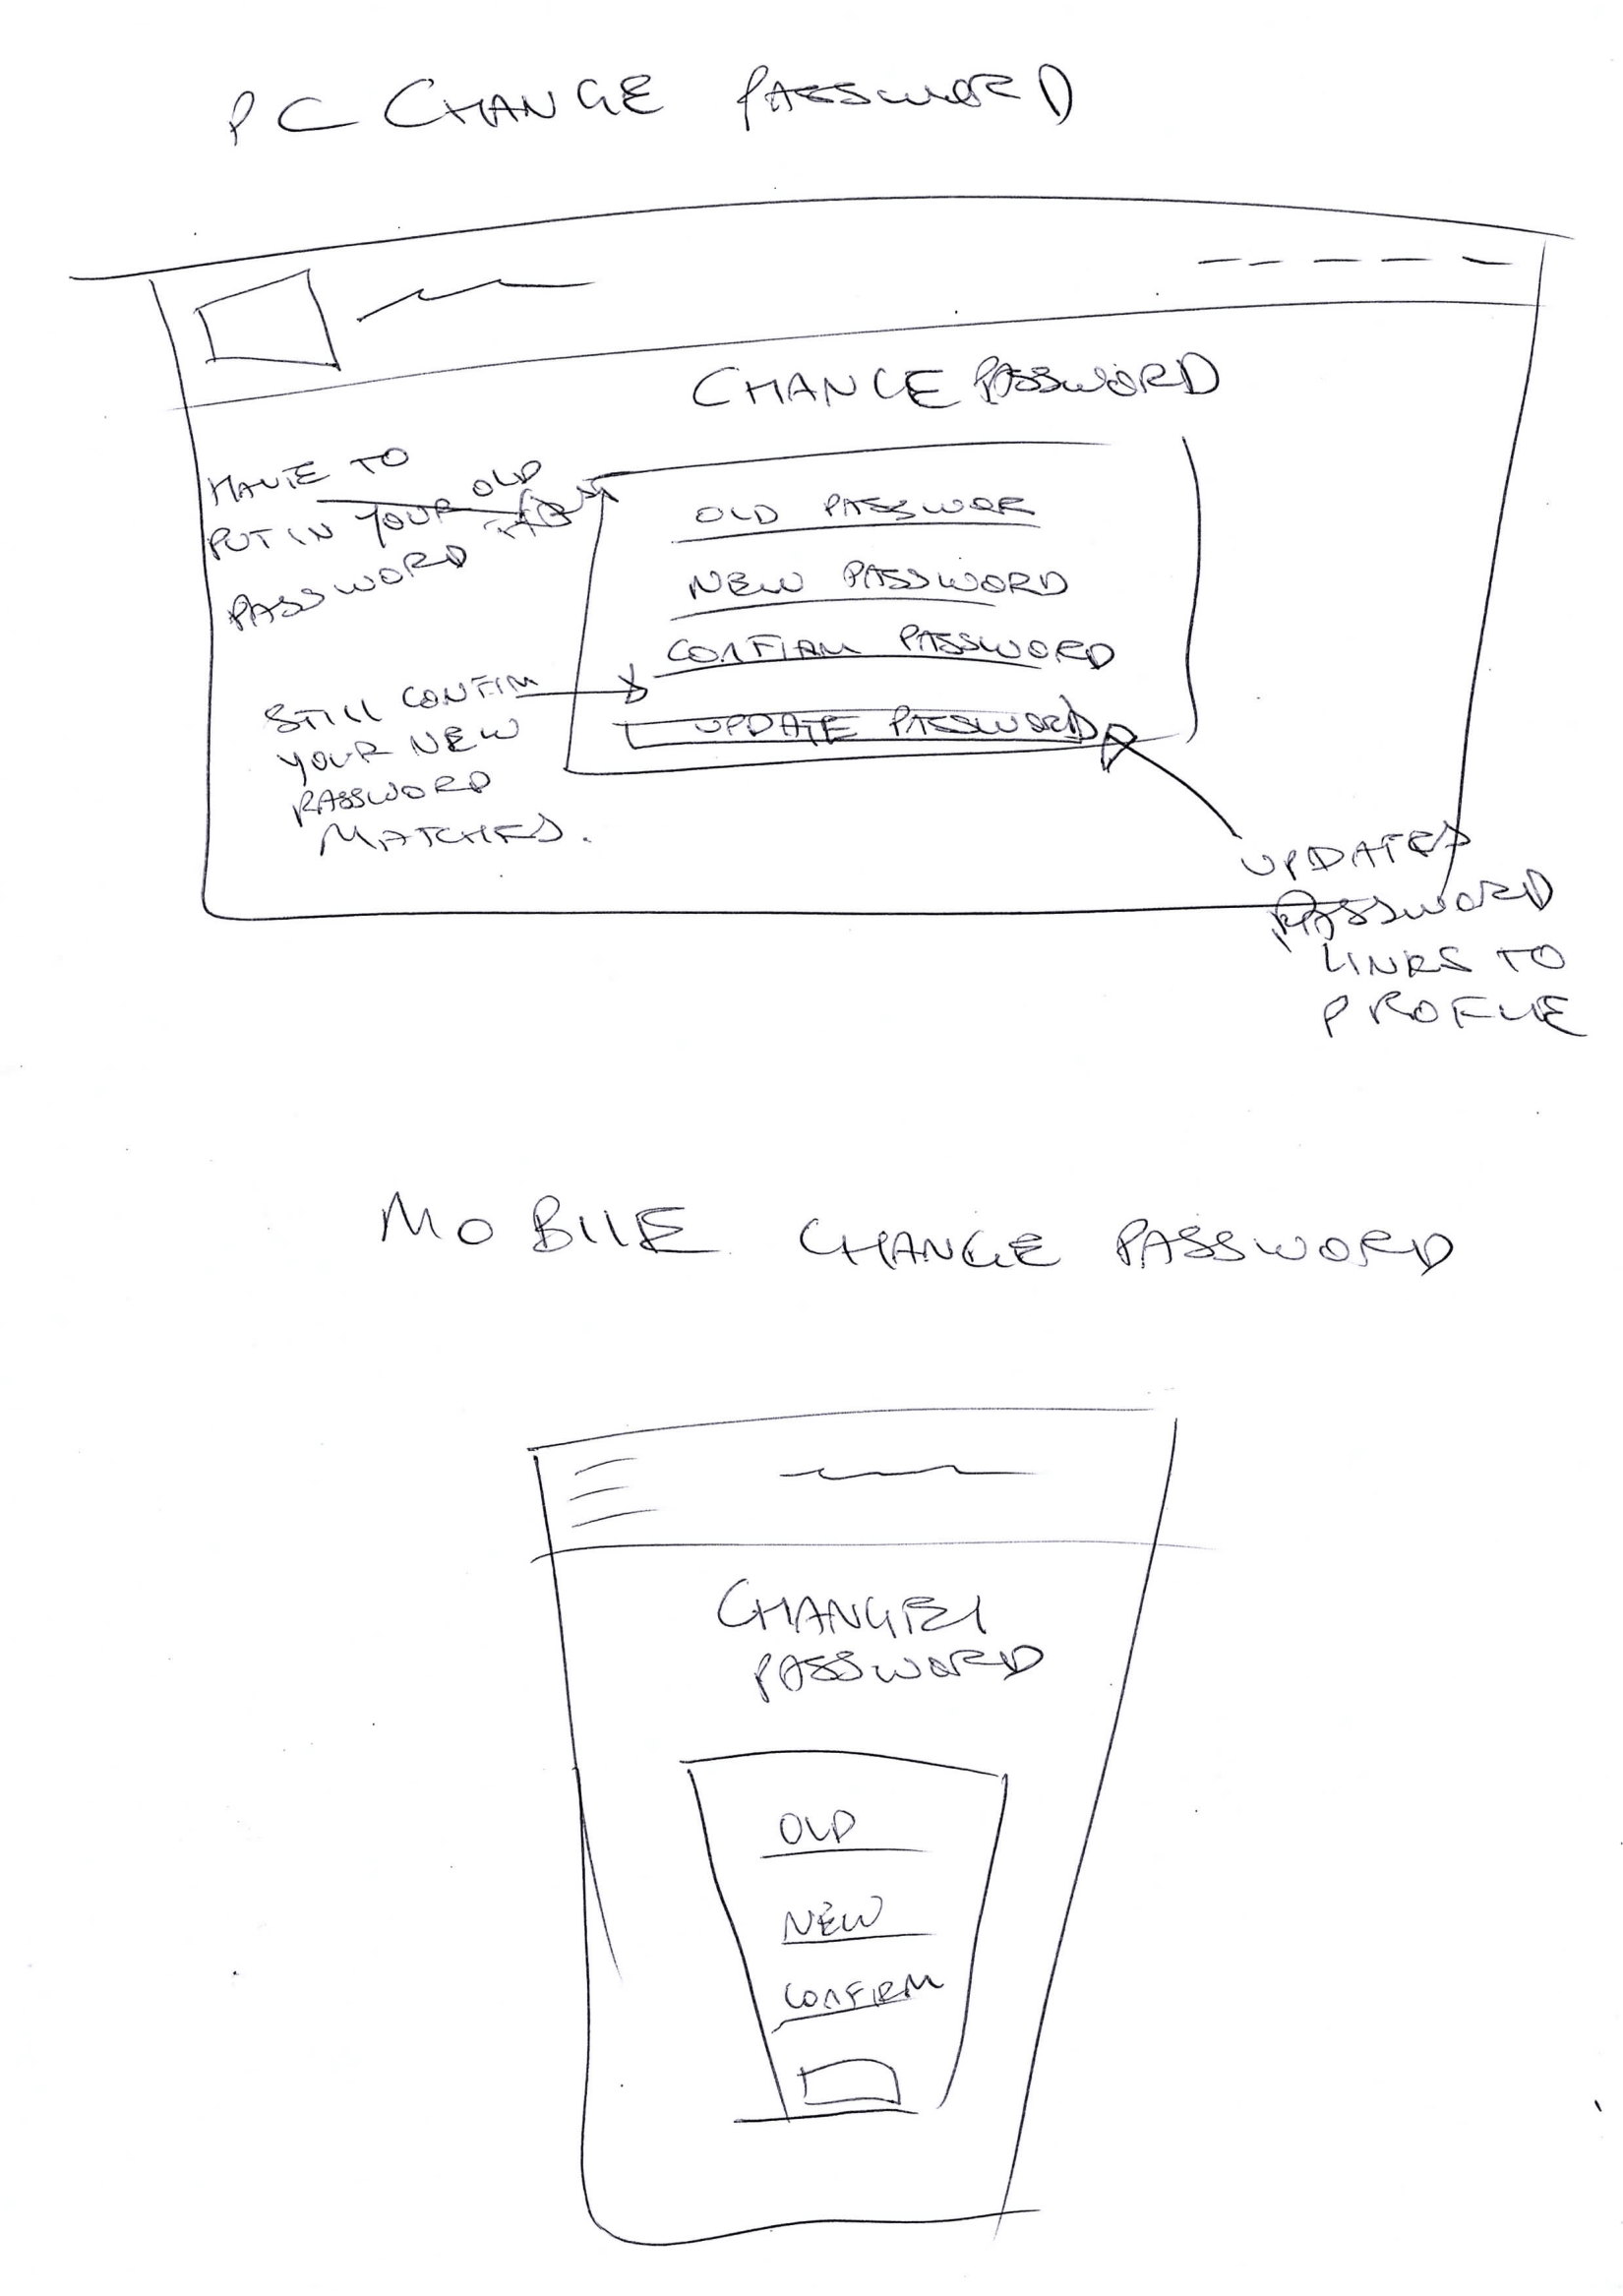 PC CHANGE PASSWORD
CHANGE PASSWORD
HAVE TO
PUT IN YOUR OLD
PASSWORD
OLD PASSWOR
NEW PASSWORD
CONFIRM PASSWORD
UPDATE PASSWORD
STILL CONFIM
YOUR NEW
PASSWORD
MATCHES.
UPDATES
PASSWORD
LINKS TO
PROFILE
MOBILE CHANGE PASSWORD
CHANGE
PASSWORD
OLD
NEW
CONFIRM